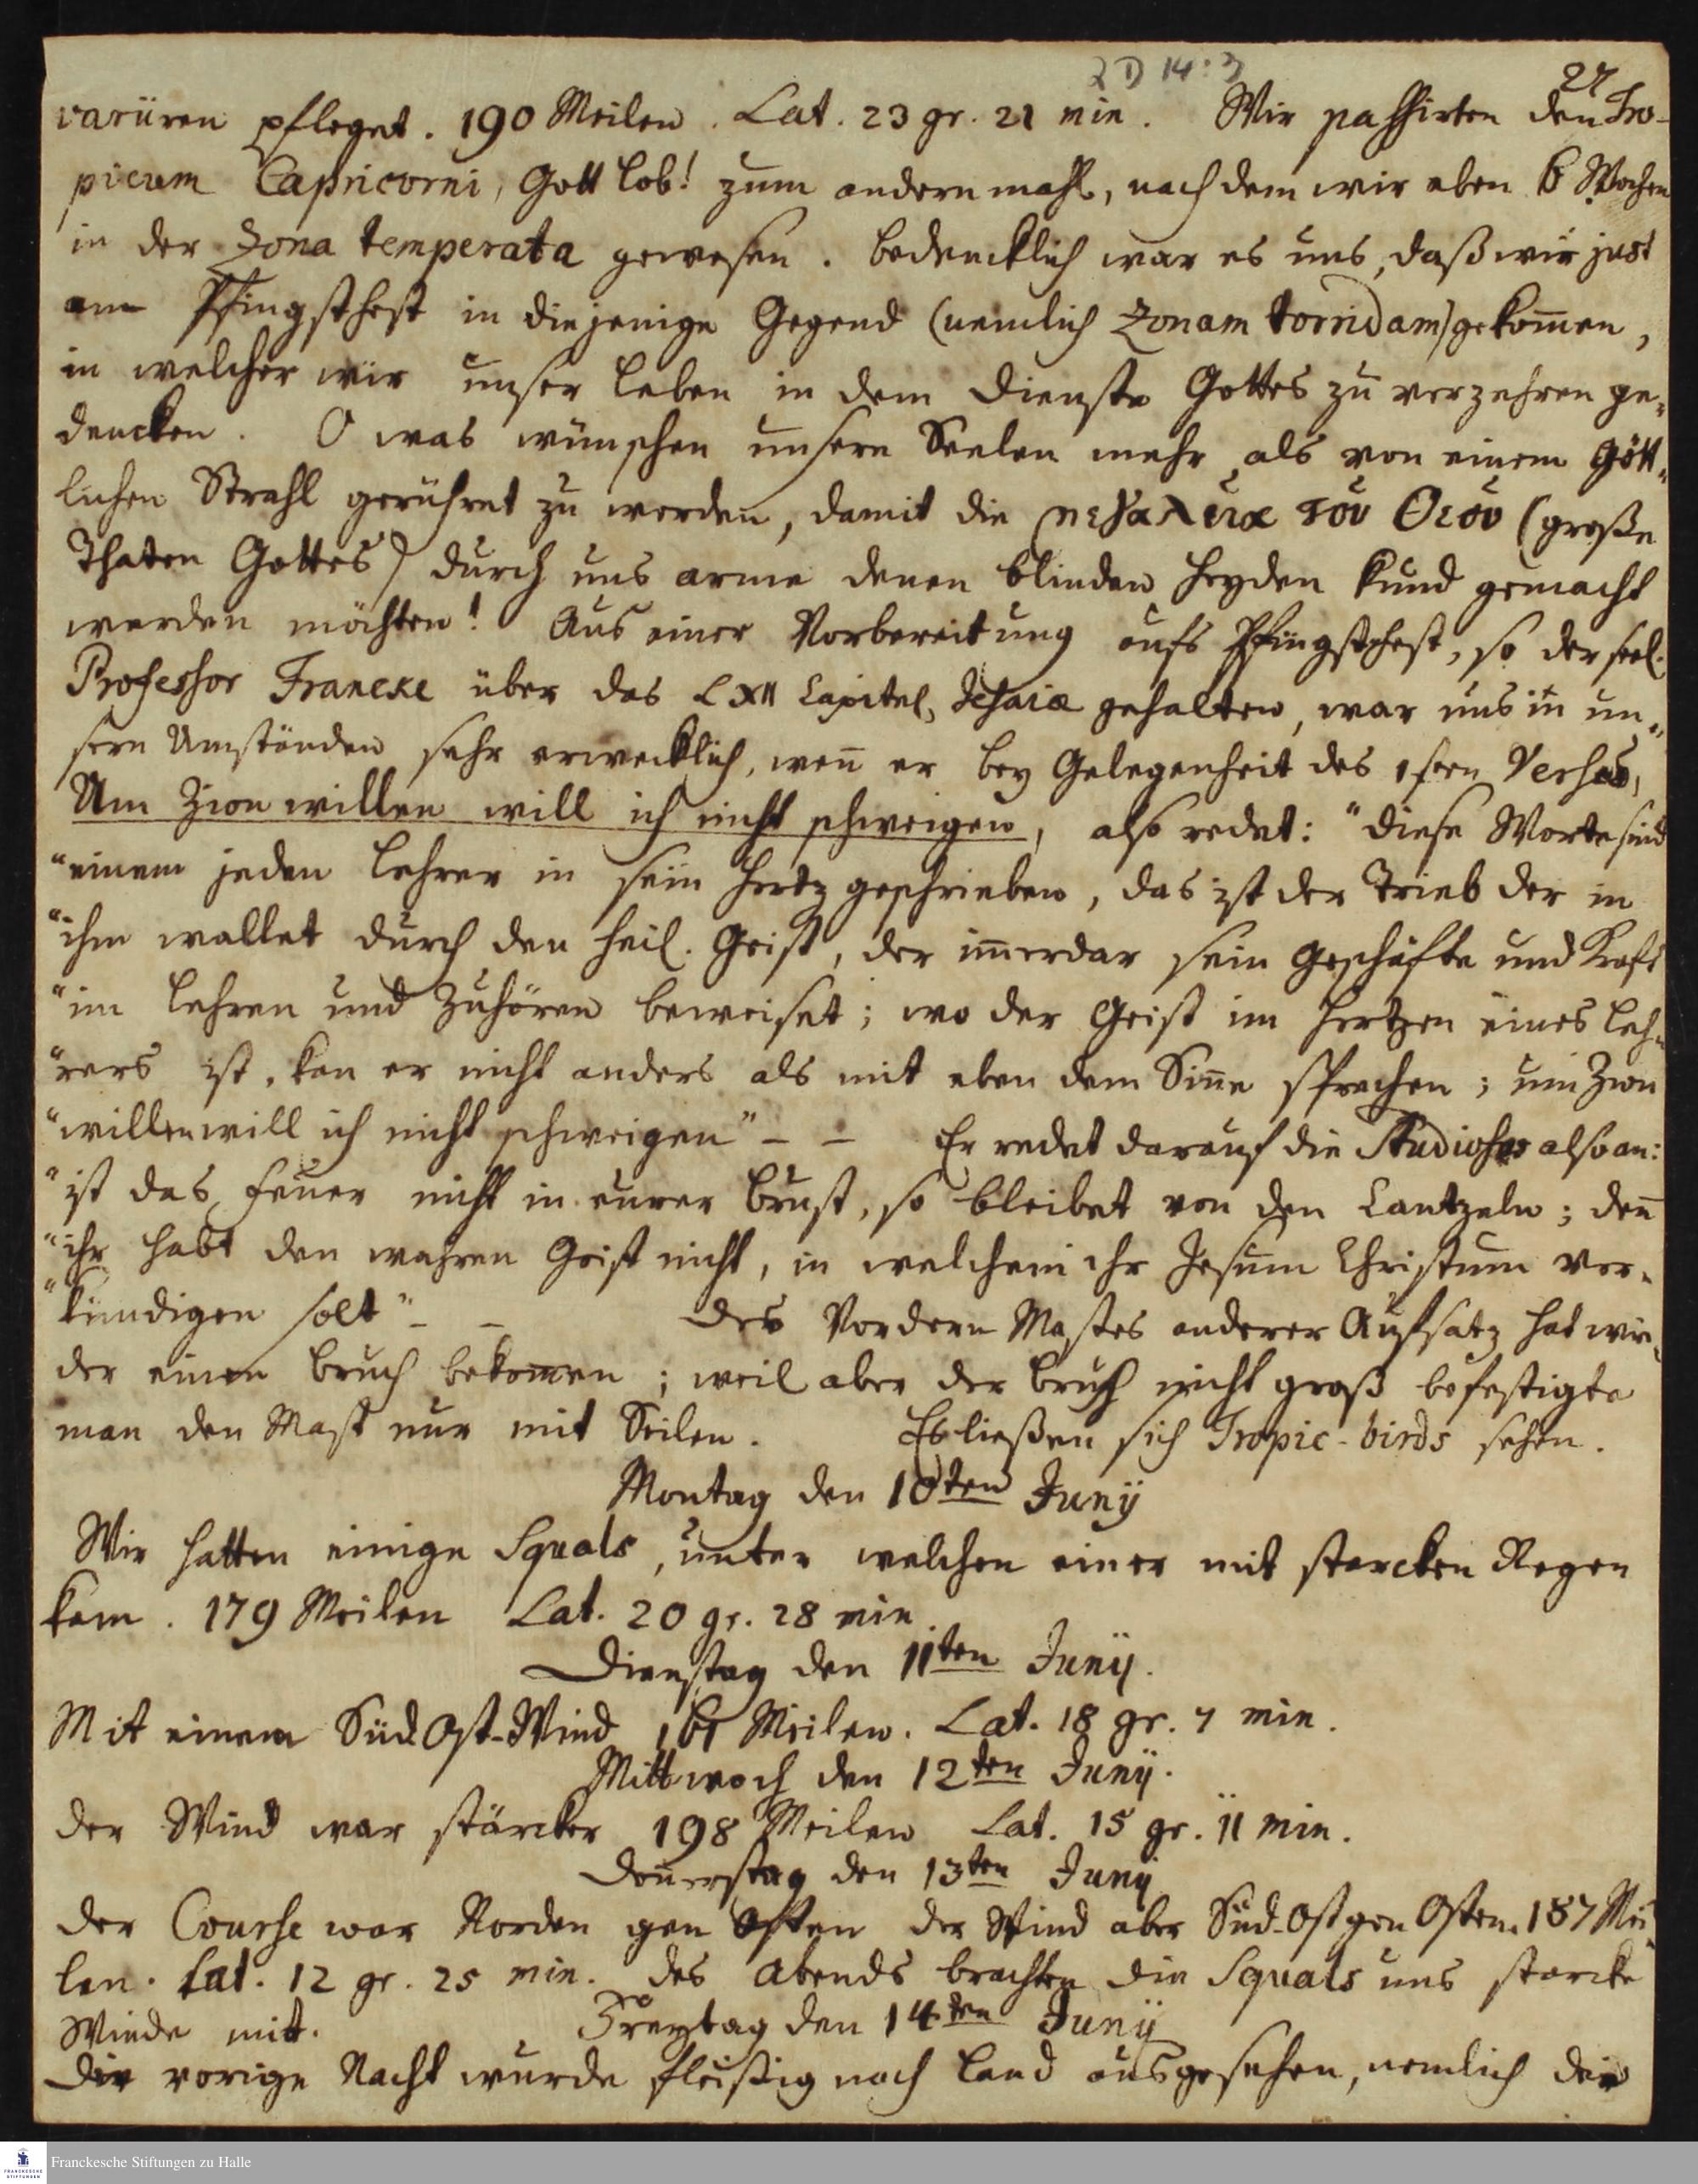 2 D 14 : 3
27
variiren pfleget. 190 Meilen. Lat. 23 gr. 21 min. Wir passirten den Tro-
picum Capricorni, Gott lob! zum andern mahl, nach dem wir eben 6 Wochen
in der Zona temperata gewesen. Bedencklich war es uns, daß wir just
am Pfingstfest in diejenige Gegend (nemlich Zonam torridam) gekom̄en,
in welcher wir unser Leben in dem Dienste Gottes zu verzehren ge-
dencken. O was wünschen unsere Seelen mehr, als von einem Gött-
lichen Strahl gerühret zu werden, damit die μεγαλεῖα τοῦ Θεοῦ (große
Thaten Gottes) durch uns arme denen blinden Heyden kund gemacht
werden möchten! Aus einer Vorbereitung aufs Pfingstfest, so der seel.
Professor Francke über das LXII Capitel Jesaiæ gehalten, war uns in un-
sern Umständen sehr erwecklich, wen̄ er bey Gelegenheit des 1sten Verses,
Um Zion willen will ich nicht schweigen, also redet: "Diese Worte sind
"einem jeden Lehrer in sein Hertz geschrieben, das ist der Trieb der in
"ihm wallet durch den heil. Geist, der im̄erdar sein Geschäfte und Kraft
"im Lehren und Zuhören beweiset; wo der Geist im Hertzen eines Leh-
"rers ist, kan er nicht anders als mit eben dem Sin̄e sprechen; um Zion
"willen will ich nicht schweigen" – – Er redet darauf die Studiosos also an:
"ist das Feuer nicht in eurer Brust, so bleibet von den Cantzeln; den̄
"ihr habt den wahren Geist nicht, in welchem ihr Jesum Christum ver-
"kündigen solt" – – Des Vordern Mastes anderer Aufsatz hat wie-
der einen Bruch bekommen; weil aber der Bruch nicht groß befestigte
man den Mast nur mit Seilen. Es ließen sich Tropic-birds sehen.
Montag den 10ten Junÿ
Wir hatten einige Squals, unter welchen einer mit starcken Regen
kam. 179 Meilen Lat. 20 gr. 28 min.
Dienstag den 11ten Junÿ.
Mit einem Süd Ost-Wind 161 Meilen. Lat. 18 gr. 7 min.
Mittwoch den 12ten Junÿ.
Der Wind war stärcker 198 Meilen Lat. 15 gr. 11 min.
Don̄erstag den 13ten Junÿ
Der Course war Norden gen Osten der Wind aber Süd-Ost gen Osten. 187 Mei-
len. Lat. 12 gr. 25 min. Des Abends brachten die Squals uns starcke
Winde mit.
Freytag den 14ten Junÿ
Die vorige Nacht wurde fleißig nach Land ausgesehen, nemlich die
Franckesche Stiftungen zu Halle
FRANCKESCHE
STIFTUNGEN